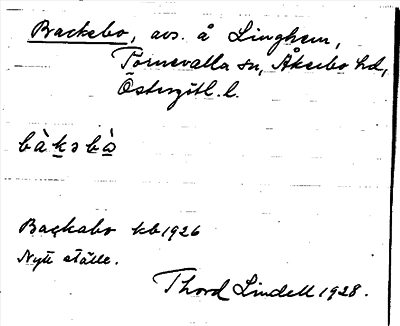 Backebo, avs. å Linghem,
Törnevalla sn, Åkerbo hd,
Östergötl. l.
bàkəbò
Backabo kb 1926
Nytt ställe.
Thord Lindell 1928.